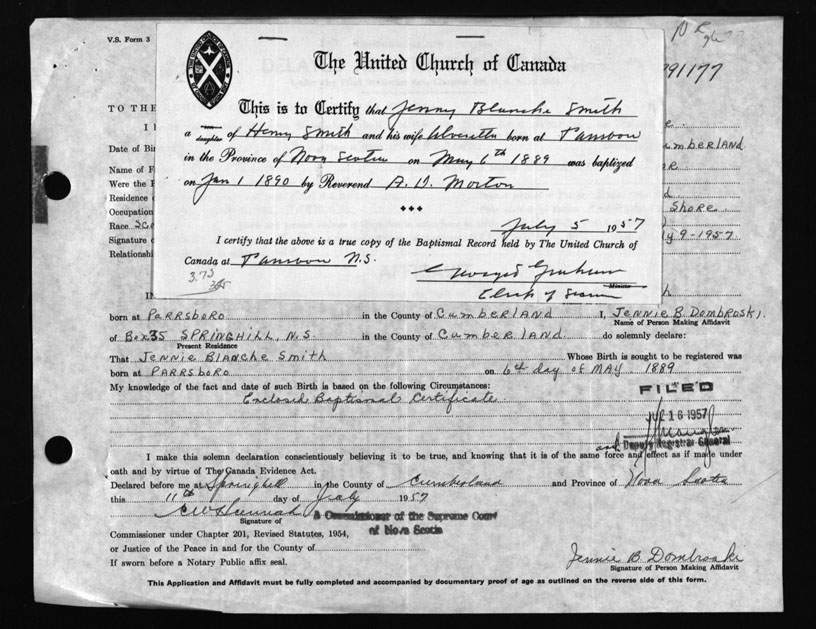 V.S. Form 3
91177
The United Church of Canada
This is to Certify that Jenny Blanche Smith
a daughter of Henry Smith and his wife Alveretta born at Parrsboro
in the Province of Nova Scotia on May 6th 1889 was baptized
on Jan 1 1890 by Reverend A. D. Morton
July 5 1957
I certify that the above is a true copy of the Baptismal Record held by The United Church of
Canada at Parrsboro N.S.
Graham
3.75
Clerk of Session
TO THE
I
Date of Bir
umberland
Name of F
Were the P
Residence o
Occupation
Shore
Race Sco
ly 9-1957
Signature o
Relationshi
IN
born at PARRSBORO in the County of Cumberland I, Jennie B. Dombroski.
Name of Person Making Affidavit
of Box 35 SPRINGHILL, N.S. in the County of Cumberland. do solemnly declare:
Present Residence
That Jennie Blanche Smith Whose Birth is sought to be registered was
born at PARRSBORO on 6th day of MAY. 1889
My knowledge of the fact and date of such Birth is based on the following Circumstances:
Enclosed Baptismal Certificate.
FILED
JUL 16 1957
Deputy Registrar General
I make this solemn declaration conscientiously believing it to be true, and knowing that it is of the same force and effect as if made under
oath and by virtue of The Canada Evidence Act.
Declared before me at Springhill in the County of Cumberland and Province of Nova Scotia
this 11th day of July 1957
Signature of
A Commissioner of the Supreme Court
of Nova Scotia
Commissioner under Chapter 201, Revised Statutes, 1954,
or Justice of the Peace in and for the County of
If sworn before a Notary Public affix seal.
Jennie B. Dombroski
Signature of Person Making Affidavit
This Application and Affidavit must be fully completed and accompanied by documentary proof of age as outlined on the reverse side of this form.